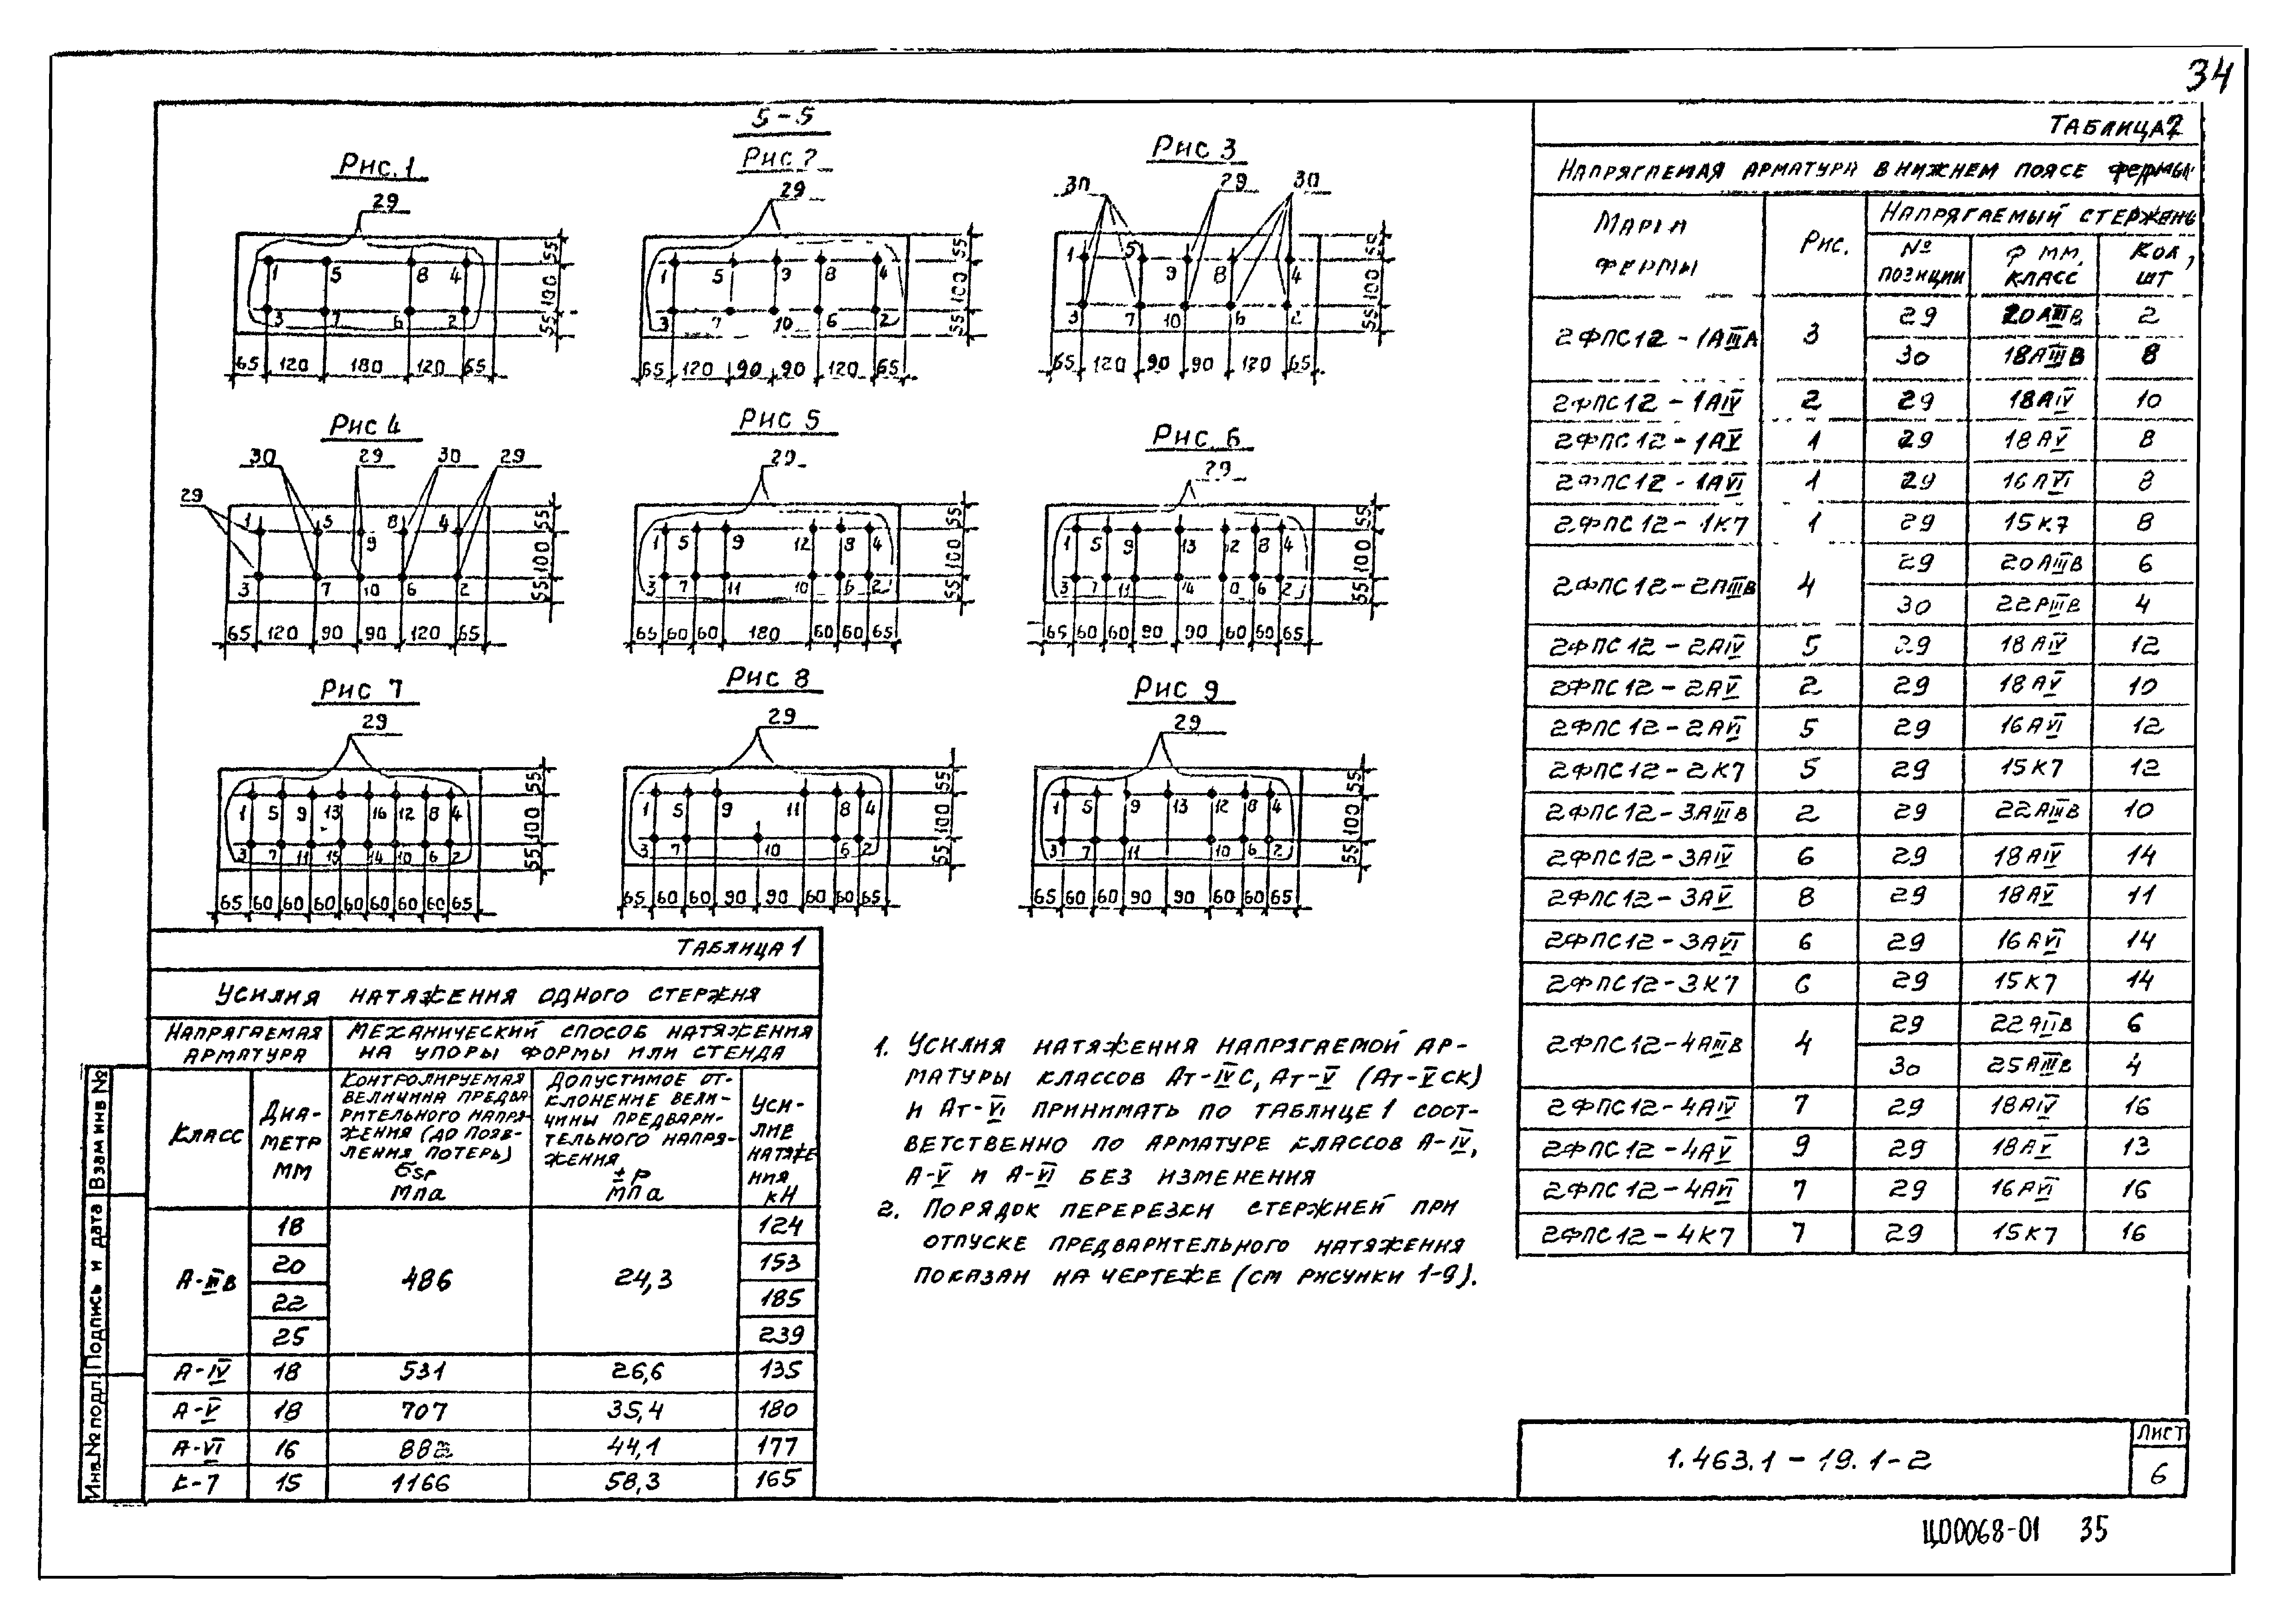 34
5-5
Рис. 1
29
1 5 8 4
3 7 6 2
65 120 180 120 65
55 100 55
Рис 2
29
1 5 9 8 4
3 7 10 6 2
65 120 90 90 120 65
55 100 55
Рис 3
30 29 30
1 5 9 8 4
3 7 10 6 2
65 120 90 90 120 65
55 100 55
Рис 4
29 30 29 30 29
1 5 9 8 4
3 7 10 6 2
65 120 90 90 120 65
55 100 55
Рис 5
29
1 5 9 12 8 4
3 7 11 10 6 2
65 60 60 180 60 60 65
55 100 55
Рис. 6
29
1 5 9 13 12 8 4
3 7 11 14 10 6 2
65 60 60 90 90 60 60 65
55 100 55
Рис 7
29
1 5 9 13 16 12 8 4
3 7 11 15 14 10 6 2
65 60 60 60 60 60 60 60 65
55 100 55
Рис 8
29
1 5 9 11 8 4
3 7 10 6 2
65 60 60 90 90 60 60 65
55 100 55
Рис 9
29
1 5 9 13 12 8 4
3 7 11 10 6 2
65 60 60 90 90 60 60 65
55 100 55
Таблица 1
Усилия натяжения одного стержня
Напрягаемая арматура
Механический способ натяжения на упоры формы или стенда
Класс
Диаметр мм
Контролируемая величина предварительного напряжения (до появления потерь) σsp Мпа
Допустимое отклонение величины предварительного напряжения ± р мпа
Усилие натяжения кН
А-IIIв 18 486 24,3 124
20 153
22 185
25 239
А-IV 18 531 26,6 135
А-V 18 707 35,4 180
А-VI 16 882 44,1 177
К-7 15 1166 58,3 165
1. Усилия натяжения напрягаемой ар-
матуры классов Ат-IVС, Ат-V (Ат-VСК)
и Ат-VI принимать по таблице 1 соот-
ветственно по арматуре классов А-IV,
А-V и А-VI без изменения
2. Порядок перерезки стержней при
отпуске предварительного натяжения
показан на чертеже (см рисунки 1-9).
Таблица 2
Напрягаемая арматура в нижнем поясе фермы
Марка фермы
Рис.
Напрягаемый стержень
№ позиции
φ мм, класс
Кол, шт
2ФПС12-1АIIIА 3 29 20АIIIв 2
30 18АIIIв 8
2ФПС12-1АIV 2 29 18АIV 10
2ФПС12-1АV 1 29 18АV 8
2ФПС12-1АVI 1 29 16АVI 8
2ФПС12-1К7 1 29 15К7 8
2ФПС12-2АIIIв 4 29 20АIIIв 6
30 22АIIIв 4
2ФПС12-2АIV 5 29 18АIV 12
2ФПС12-2АV 2 29 18АV 10
2ФПС12-2АVI 5 29 16АVI 12
2ФПС12-2К7 5 29 15К7 12
2ФПС12-3АIIIв 2 29 22АIIIв 10
2ФПС12-3АIV 6 29 18АIV 14
2ФПС12-3АV 8 29 18АV 11
2ФПС12-3АVI 6 29 16АVI 14
2ФПС12-3К7 6 29 15К7 14
2ФПС12-4АIIIв 4 29 22АIIIв 6
30 25АIIIв 4
2ФПС12-4АIV 7 29 18АIV 16
2ФПС12-4АV 9 29 18АV 13
2ФПС12-4АVI 7 29 16АVI 16
2ФПС12-4К7 7 29 15К7 16
Инв.№ подл. Подпись и дата Взам инв №
1.463.1-19.1-2
Лист
6
Ц00068-01 35